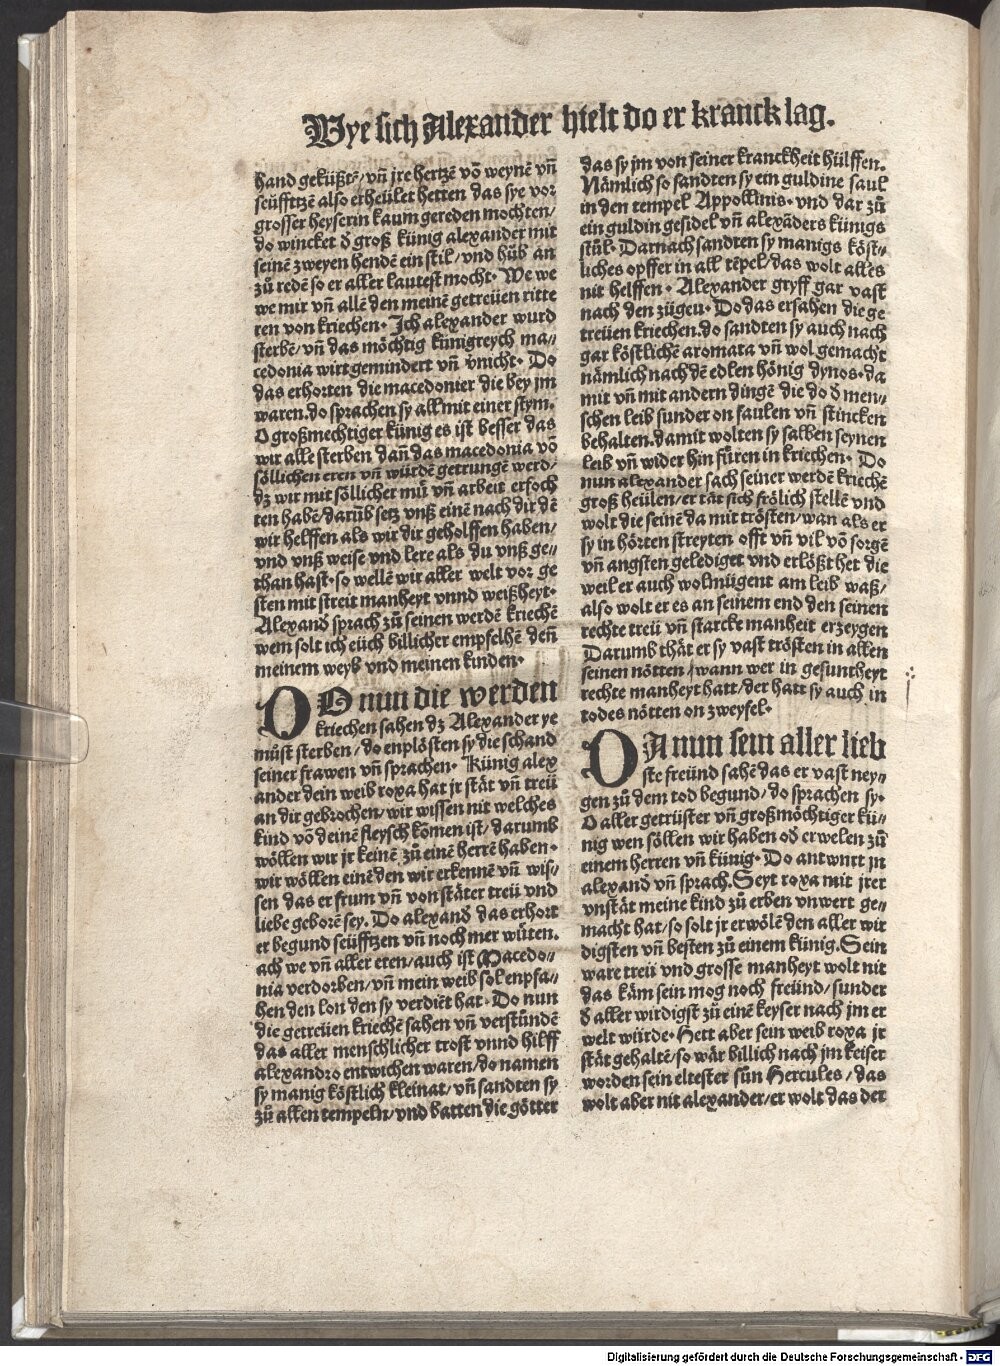 Wye sich Alexander hielt do er kranck lag.
hand geküßtē/ vñ jre hertzē vō weynē vñ
seüfftzē also erheület hetten das sye vor
grosser heyserin kaum gereden mochten/
do wincket d̄ groß künig alexander mit
seinē zweyen hendē ein stil/ vnd hůb an
zů redē so er aller lautest mocht. We we
we mir vñ allē den meinē getreüen ritte
ren von kriechen. Ich alexander wurd
sterbē/ vñ das möchtig künigreych ma⸗
cedonia wirt gemindert vñ v̄nicht. Do
das erhorten die macedonier die bey jm
waren. do sprachen sy all mit einer stym.
O großmechtiger künig es ist besser das
wir alle sterben dañ das macedonia vō
söllichen eren vñ würdē getrungē werd/
dz wir mit söllicher mü vñ arbeit erfoch
ten habē/ darūb setz vnß einē nach dir dē
wir helffen als wir dir geholffen haben/
vnd vnß weise vnd lere als du vnß ge⸗
than hast. so wellē wir aller welt vor ge
sten mit streit manheyt vnnd weißheyt.
Alexand̄ sprach zů seinen werdē kriechē
wem solt ich eüch billicher empfelhē deñ
meinem weyb vnd meinen kinden.
DO nun die werden
kriechen sahen dz Alexander ye
můst sterben/ do enplösten sy die schand
seiner frawen vñ sprachen. Künig alex
ander dein weib roxa hat jr stät vñ treü
an dir gebrochen/ wir wissen nit welches
kind vō deinē fleysch komen ist/ darumb
wöllen wir jr keinē zů einē herrē haben.
wir wöllen einē den wir erkennē vñ wis⸗
sen das er frum vñ von stäter treü vnd
liebe geborē sey. Do alexand̄ das erhort
er begund seüfftzen vñ noch mer wüten.
ach we vñ aller eren/ auch ist Macedo⸗
nia verdorben/ vñ mein weib sol enpfa⸗
hen den lon den sy verdiēt hat. Do nun
die getreüen kriechē sahen vñ verstündē
das aller menschlicher trost vnnd hilff
alexandro entwichen waren/ do namen
sy manig köstlich kleinat/ vñ sandten sy
zů allen tempeln/ vnd batten die götter
das sy jm von seiner kranckheit hülffen.
Nämlich so sandten sy ein guldine saul
in den tempel Appollinis. vnd dar zů
ein guldin gesidel vñ alexāders künigs
stůl. Darnach sandten sy manigs köst⸗
liches opffer in all tēpel/ das wolt alles
nit helffen. Alexander gryff gar vast
nach den zügen. Do das ersahen die ge
treüen kriechen. do sandten sy auch nach
gar köstlichē aromata vñ wol gemacht
nämlich nach dē edlen hönig dynos. da
mit vñ mit andern dingē die do d̄ men⸗
schen leib sunder on faulen vñ stincken
behalten. damit wolten sy salben seynen
leib vñ wider hin füren in kriechen. Do
nun alexander sach seiner werdē kriechē
groß heülen/ er tät sich frölich stellē vnd
wolt die seinē da mit trösten/ wan als er
sy in hörten streyten offt vñ vil vō sorgē
vñ angsten gelediget vnd erlößt het die
weil er auch wolmügent am leib waß/
also wolt er es an seinem end den seinen
rechte treü vñ starcke manheit erzeygen
Darumb thät er sy vast trösten in allen
seinen nötten/ wann wer in gesuntheyt
rechte manheyt hatt/ der hatt sy auch in
todes nötten on zweyfel.
DA nun sein aller lieb
ste freünd sahē das er vast ney⸗
gen zů dem tod begund/ do sprachen sy.
O aller getrüster vñ großmöchtiger kü⸗
nig wen söllen wir haben od̄ erwelen zů
einem herren vñ künig. Do antwurt jn
alexand̄ vñ sprach. Seyt roxa mit jrer
vnstät meine kind zů erben vnwert ge⸗
macht hat/ so solt jr erwölē den aller wir
digisten vñ besten zů einem künig. Sein
ware treü vnd grosse manheyt wolt nit
das käm sein mog noch freünd/ sunder
d̄ aller wirdigst zů einē keyser nach jm er
welt würde. Hett aber sein weib roxa jr
stät gehaltē/ so wär billich nach jm keiser
worden sein eltester sun Hercules/ das
wolt aber nit alexander/ er wolt das der
Digitalisierung gefördert durch die Deutsche Forschungsgemeinschaft - DFG